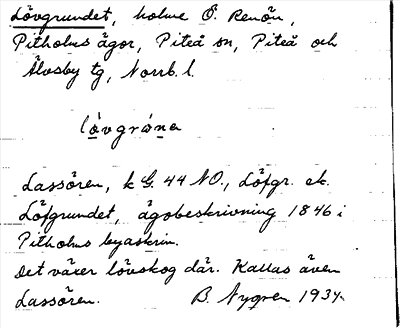 Lövgrundet, holme Ö. Renön,
Pitholms ägor, Piteå sn, Piteå och
Älvsby tg, Norrb. l.
lövgrúna
Lassören, k G. 44 NO., Löfgr. ek.
Löfgrundet, ägobeskrivning 1846 i
Pitholms byaskrin.
Det växer lövskog där. Kallas även
Lassören. B. Nygren 1934.